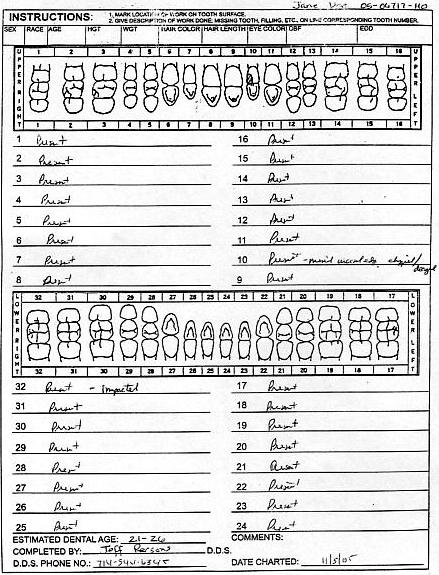 Jane Doe 05-04717-HO
INSTRUCTIONS: 1. MARK LOCATION OF WORK ON TOOTH SURFACE.
2. GIVE DESCRIPTION OF WORK DONE, MISSING TOOTH, FILLING, ETC., ON LINE CORRESPONDING TOOTH NUMBER.
SEX RACE AGE HGT WGT HAIR COLOR HAIR LENGTH EYE COLOR DBF EDD
UPPER RIGHT 1 2 3 4 5 6 7 8 9 10 11 12 13 14 15 16 UPPER LEFT
1 2 3 4 5 6 7 8 9 10 11 12 13 14 15 16
1 Present 16 Present
2 Present 15 Present
3 Present 14 Present
4 Present 13 Present
5 Present 12 Present
6 Present 11 Present
7 Present 10 Present
8 Present 9 Present
LOWER RIGHT 32 31 30 29 28 27 26 25 24 23 22 21 20 19 18 17 LOWER LEFT
32 31 30 29 28 27 26 25 24 23 22 21 20 19 18 17
32 Present - impacted 17 Present
31 Present 18 Present
30 Present 19 Present
29 Present 20 Present
28 Present 21 Present
27 Present 22 Present
26 Present 23 Present
25 Present 24 Present
ESTIMATED DENTAL AGE: 21-26 COMMENTS:
COMPLETED BY: Jeff Persons D.D.S.
D.D.S. PHONE NO.: 714-544-6345 DATE CHARTED: 11/5/05